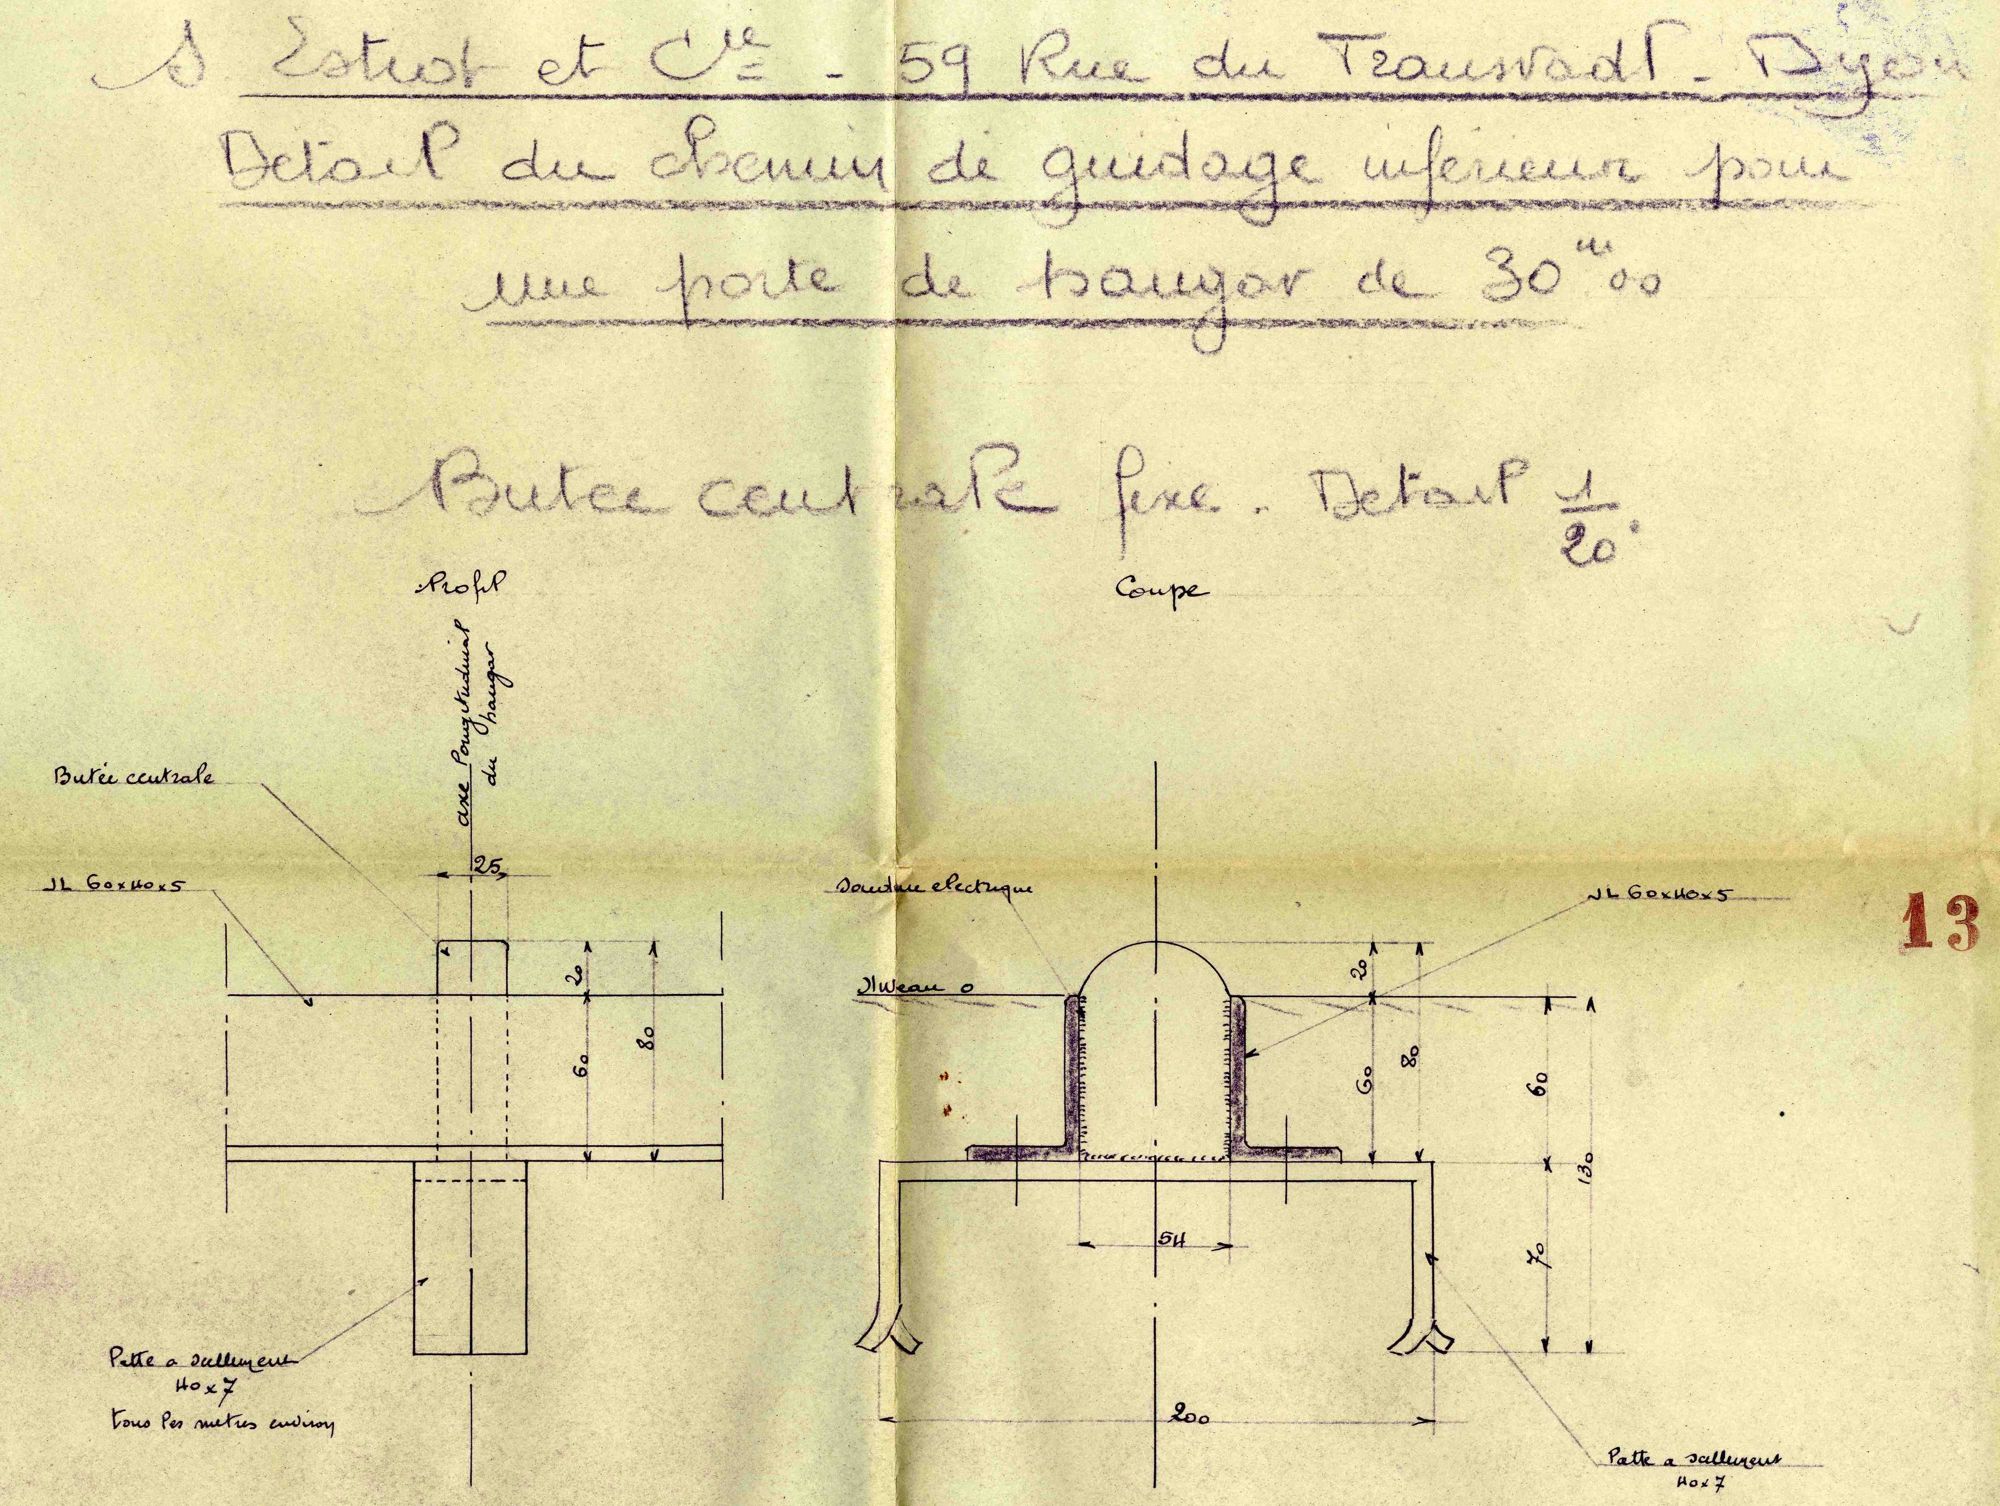 59 Rue du Transvaal - Dijon
Detail du chemin de guidage inferieur pour
une porte de hangar de 30ᵐ00
Butée centrale fixe. Detail 1/20.
Profil
Coupe
axe longitudinal
du hangar
Butée centrale
25
60x40x5
Soudure electrique
60x40x5
13
20
20
Niveau 0
60
80
60
80
60
130
54
70
Patte a scellement
40x7
tous les metres environ
200
Patte a scellement
40x7